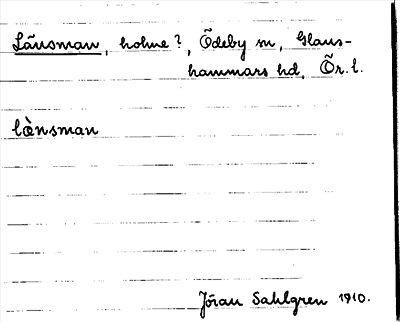 Länsman, holme?, Ödeby sn, Glans-
hammars hd, Ör. l.
lànsman
Jöran Sahlgren 1910.